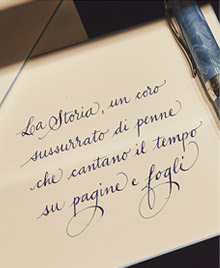 La Storia, un coro
sussurrato di penne
che cantano il tempo
su pagine e fogli